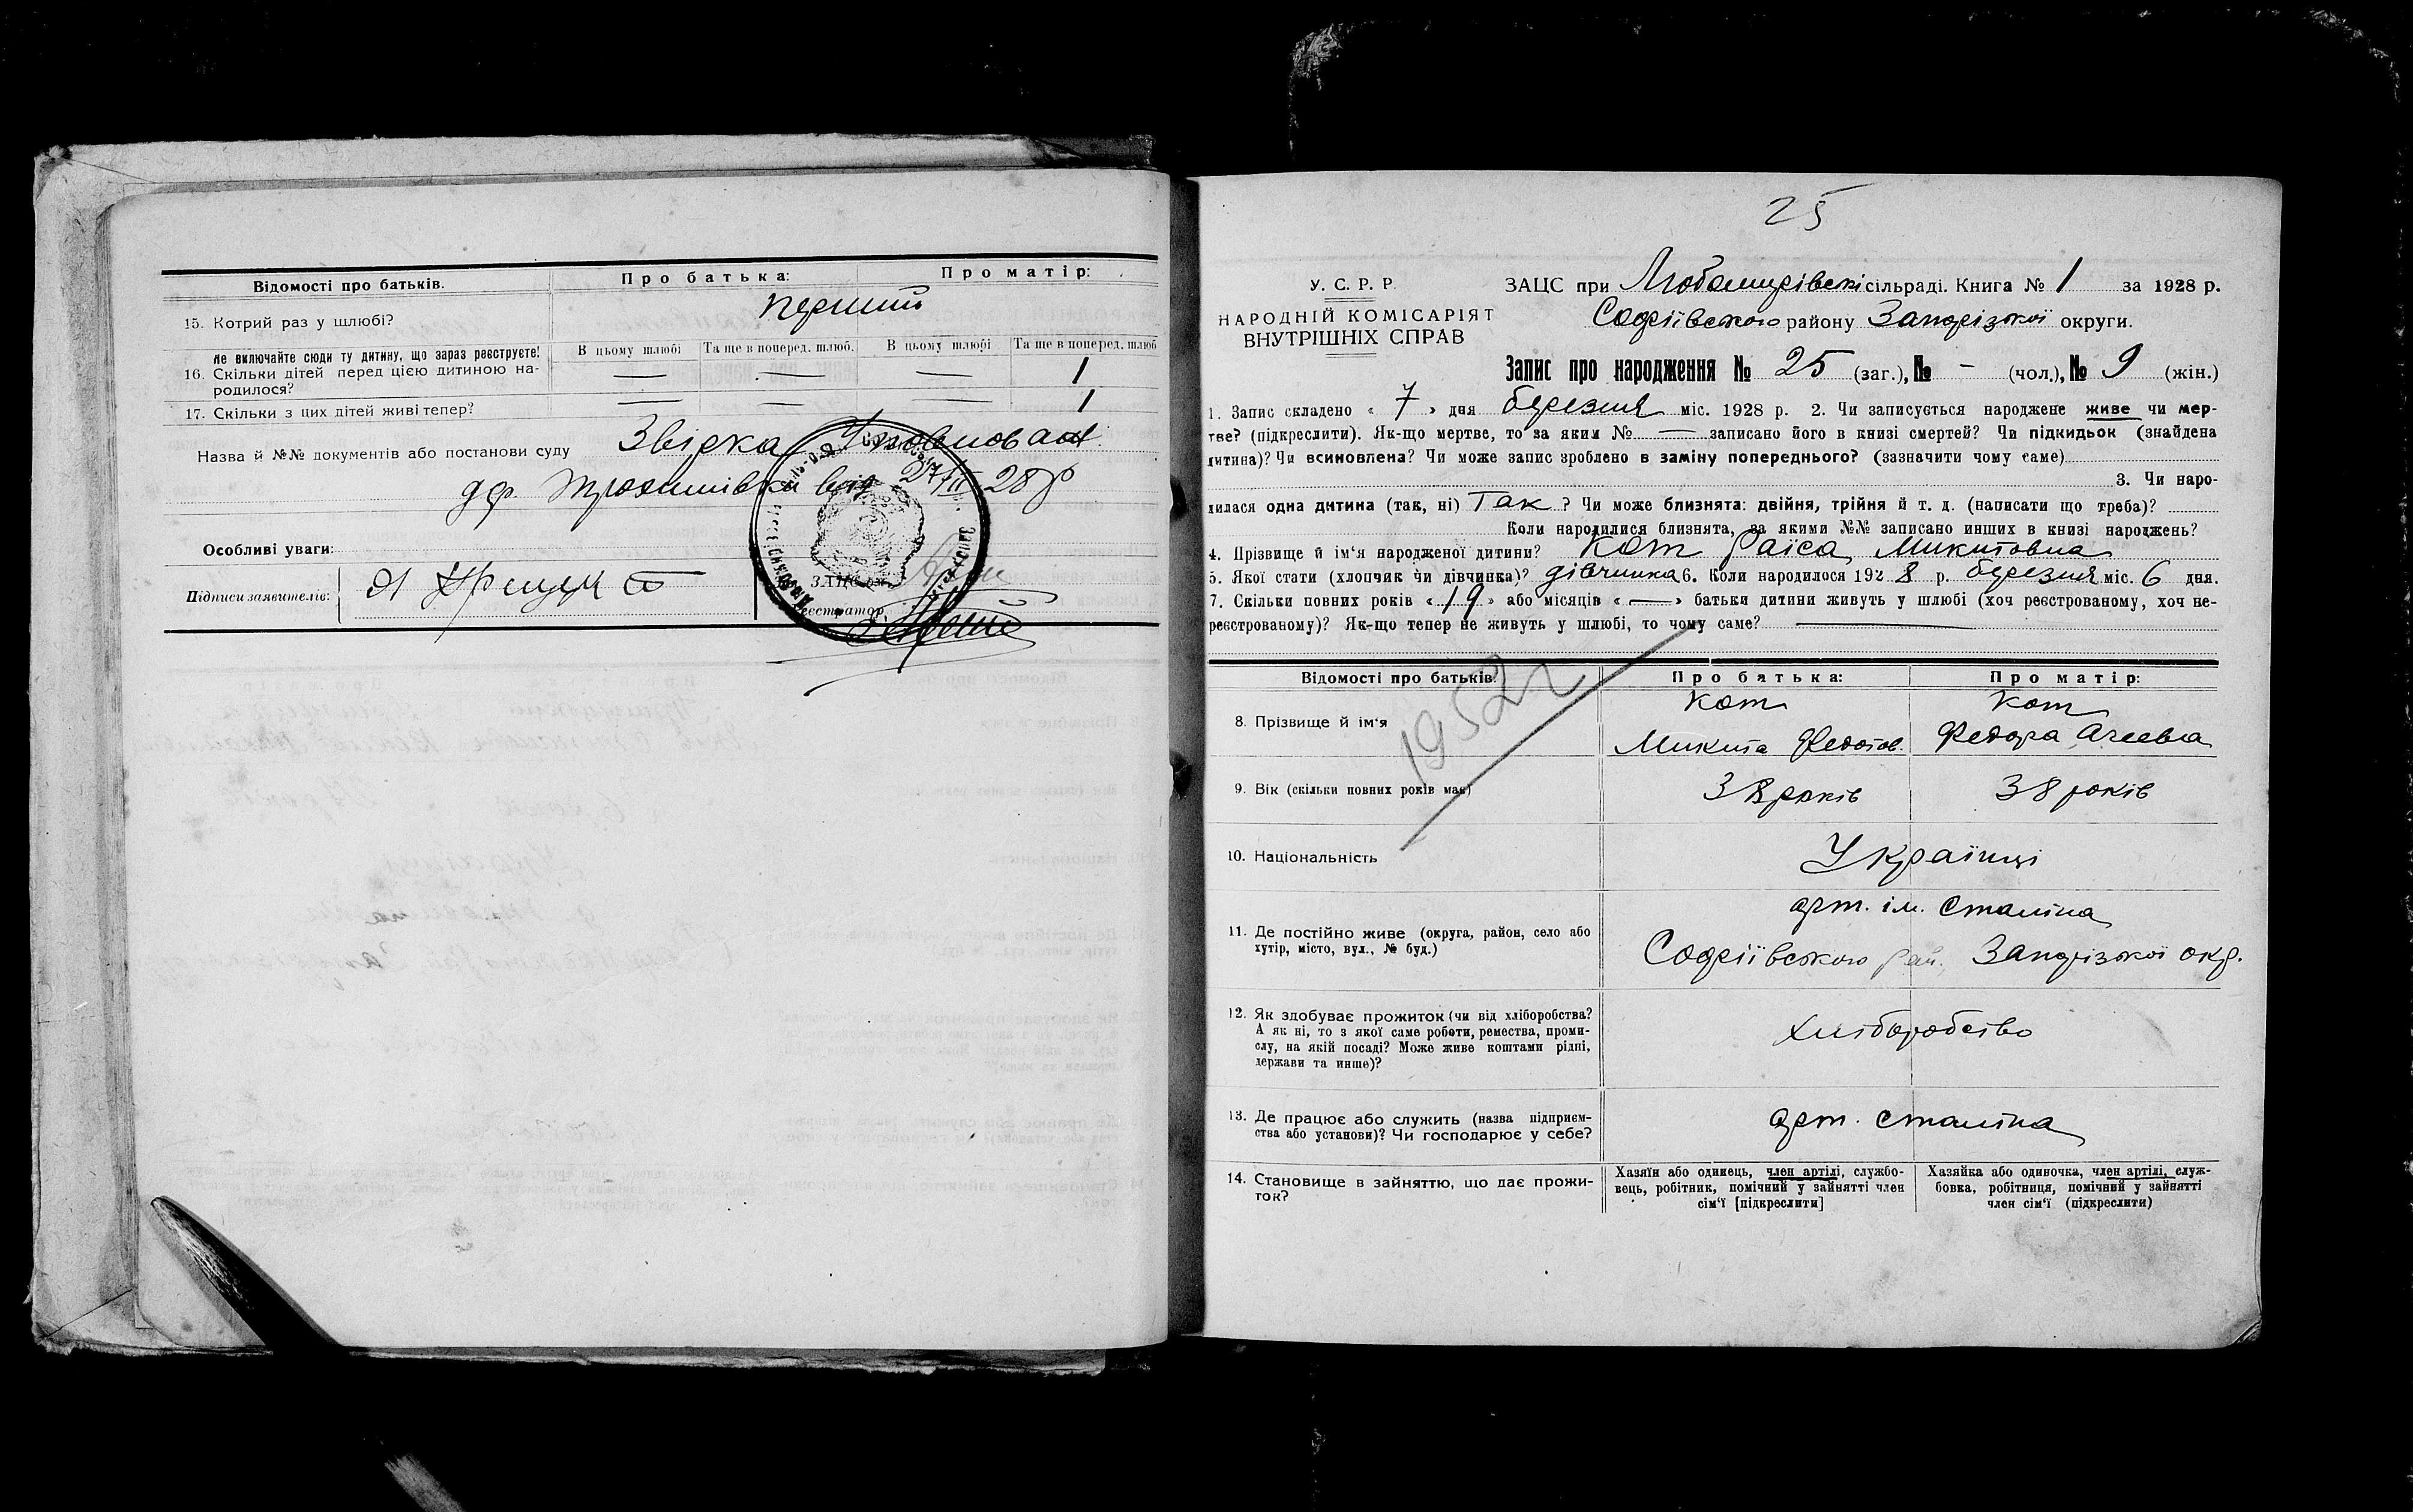 Відомості про батьків.
Про батька:
Про матір:
15. Котрий раз у шлюбі?
перший
Не включайте сюди ту дитину, що зараз реєструєте!
В цьому шлюбі
Та ще в поперед. шлюб.
В цьому шлюбі
Та ще в поперед. шлюб
16. Скільки дітей перед цією дитиною на-
родилося?
— — — 1
17. Скільки з цих дітей живі тепер?
— — — 1
Назва й №№ документів або постанови суду
Звірка
від 27/II 28 р
Особливі уваги:
Підписи заявителів:
ЗАГС'ом
Реєстратор
25
У. С. Р. Р.
НАРОДНІЙ КОМІСАРІЯТ
ВНУТРІШНІХ СПРАВ
ЗАЦС при Любомирівській сільраді. Книга № 1 за 1928 р.
Софіївського району Запорізької округи.
Запис про народження № 25 (заг.), № - (чол.), № 9 (жін.)
1. Запис складено « 7 » дня березня міс. 1928 р. 2. Чи записується народжене живе чи мер-
тве? (підкреслити). Як-що мертве, то за яким № — записано його в книзі смертей? Чи підкидьок (знайдена
дитина)? Чи всиновлена? Чи може запис зроблено в заміну попереднього? (зазначити чому саме)
3. Чи наро-
дилася одна дитина (так, ні) Так ? Чи може близнята: двійня, трійня й т. д. (написати що треба)?
Коли народилися близнята, за якими №№ записано инших в книзі народжень?
4. Прізвище й ім'я народженої дитини? Кот Раїса Микитовна
5. Якої стати (хлопчик чи дівчинка)? дівчинка 6. Коли народилося 192 8 р. березня міс. 6 дня.
7. Скільки повних років « 19 » або місяців « — » батьки дитини живуть у шлюбі (хоч реєстрованому, хоч не-
реєстрованому)? Як-що тепер не живуть у шлюбі, то чому саме? —
Відомості про батьків.
Про батька:
Про матір:
8. Прізвище й ім'я
Кот
Микита Федотов.
Кот
Федора
9. Вік (скільки повних років має)
38 років
38 років
10. Національність
Українці
11. Де постійно живе (округа, район, село або
хутір, місто, вул., № буд.)
арт. ім. Сталіна
Софіївського рай. Запорізької окр.
12. Як здобуває прожиток (чи від хліборобства?
А як ні, то з якої саме роботи, ремества, проми-
слу, на якій посаді? Може живе коштами рідні,
держави та инше)?
Хліборобство
13. Де працює або служить (назва підприєм-
ства або установи)? Чи господарює у себе?
арт. Сталіна
14. Становище в зайняттю, що дає прожи-
ток?
Хазяїн або одинець, член артілі, службо-
вець, робітник, помічний у зайнятті член
сім'ї [підкреслити]
Хазяйка або одиночка, член артілі, служ-
бовка, робітниця, помічний у зайнятті
член сім'ї (підкреслити)